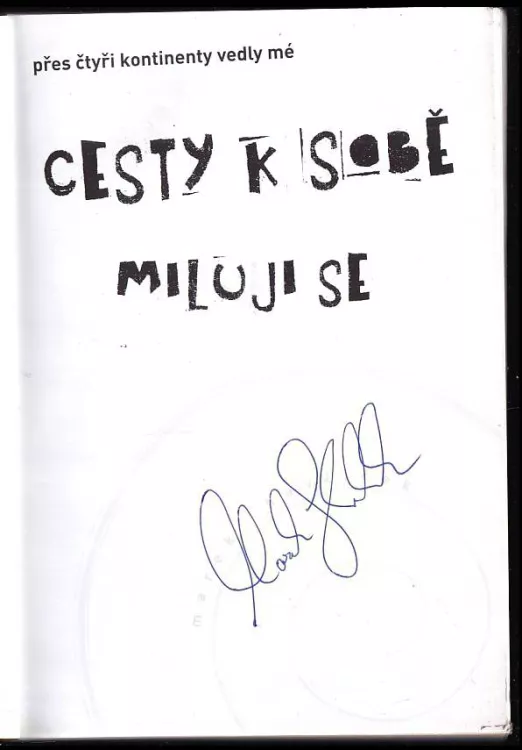 přes čtyři kontinenty vedly mé
CESTY K SOBĚ
MILUJI SE